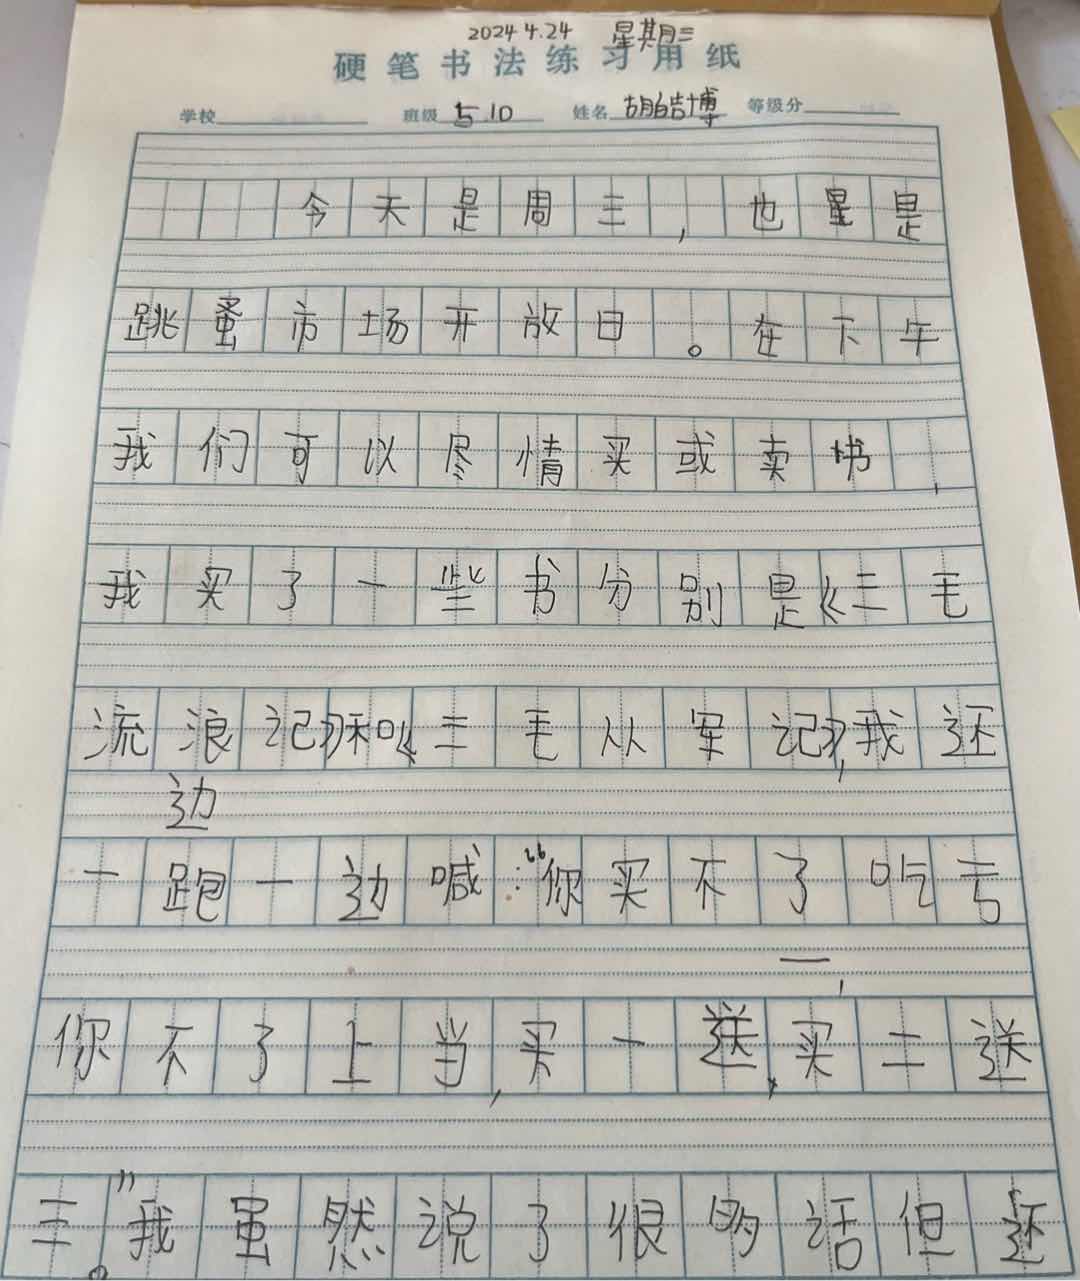 2024 4.24 星期三
硬笔书法练习用纸
学校 班级 5.10 姓名 胡皓博 等级分
今天是周三，也星是
跳蚤市场开放日。在下午
我们可以尽情买或卖书，
我买了一些书分别是《三毛
流浪记》和《三毛从军记》，我还
边
一跑一边喊：“你买不了吃亏
你不了上当，买一送一，买二送
三。”我虽然说了很多话但还